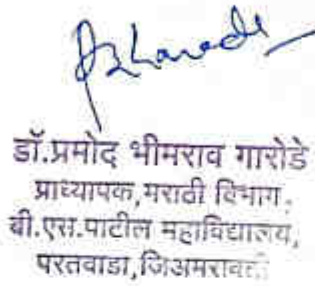 डॉ.प्रमोद भीमराव गारोडे
प्राध्यापक,मराठी विभाग,
बी.एस.पाटील महाविद्यालय,
परतवाडा,जि.अमरावती.